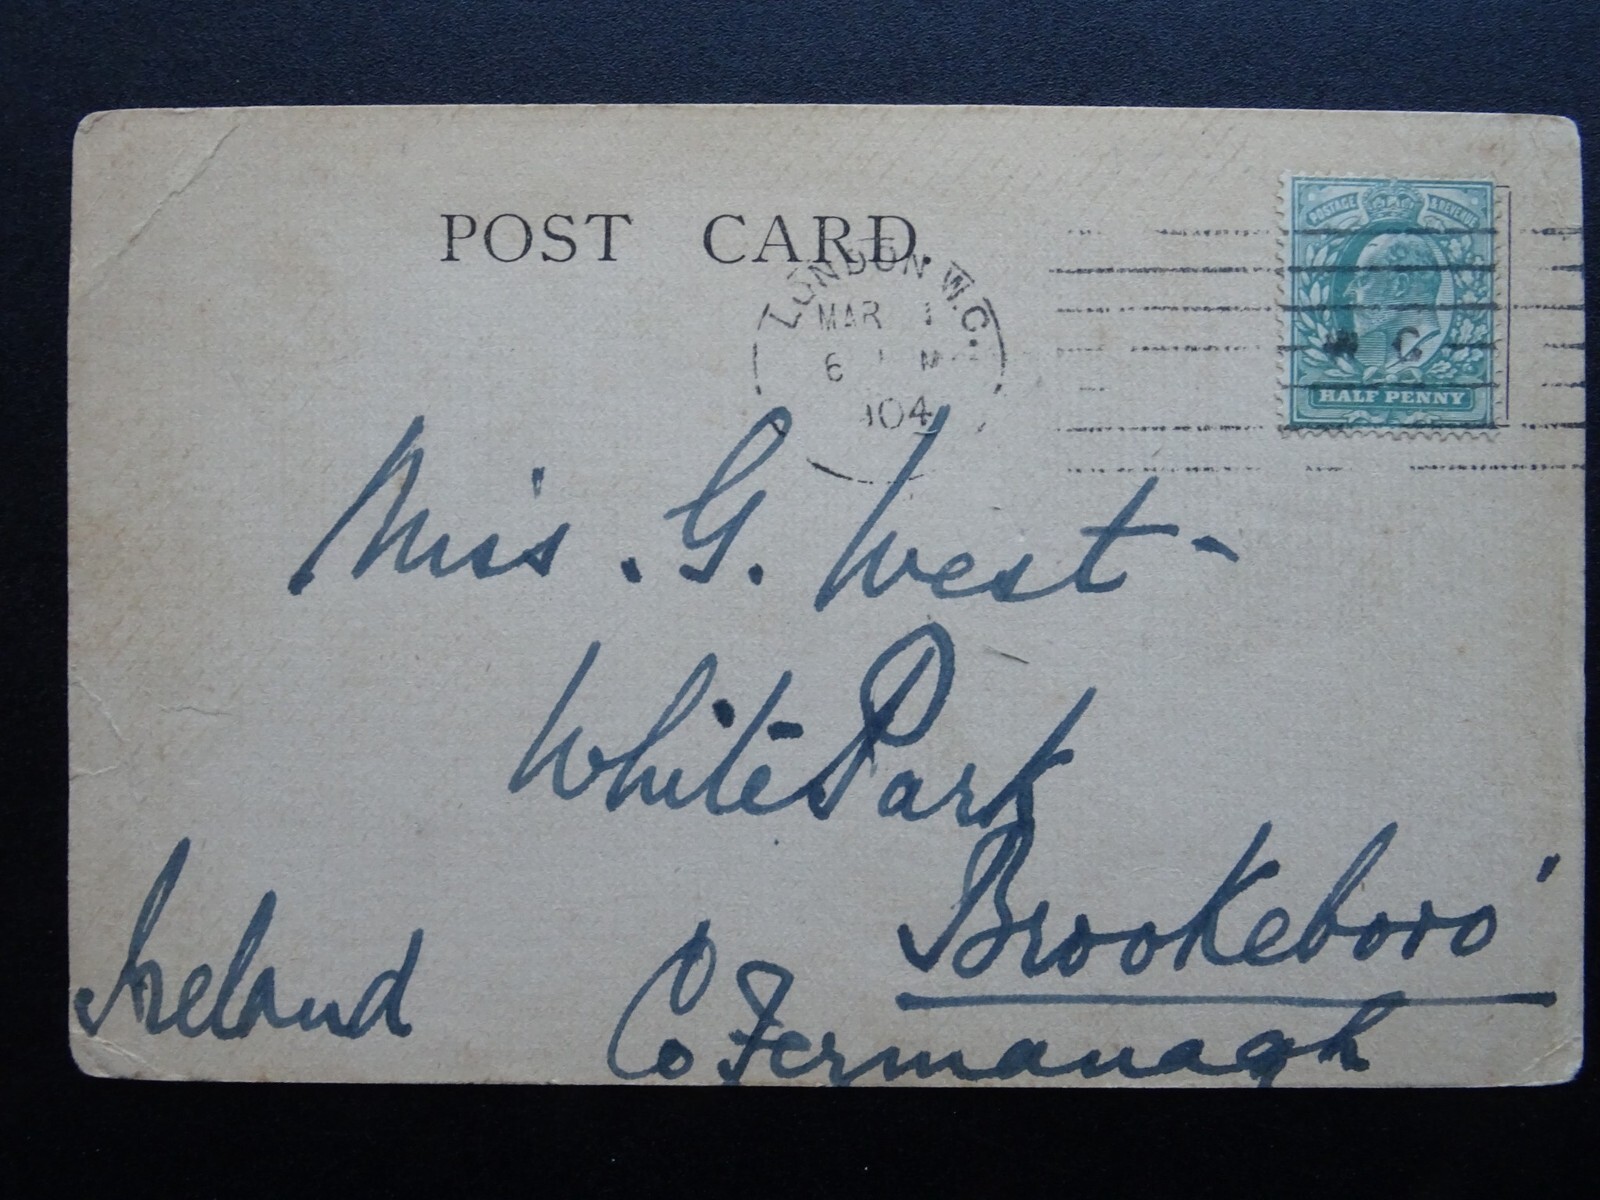 POST CARD.
POSTAGE & REVENUE
LONDON W.C.
MAR 1
6 M
04
W C
HALF PENNY
Miss. G. West -
White Park
Brookeboro'
Ireland
Co Fermanagh